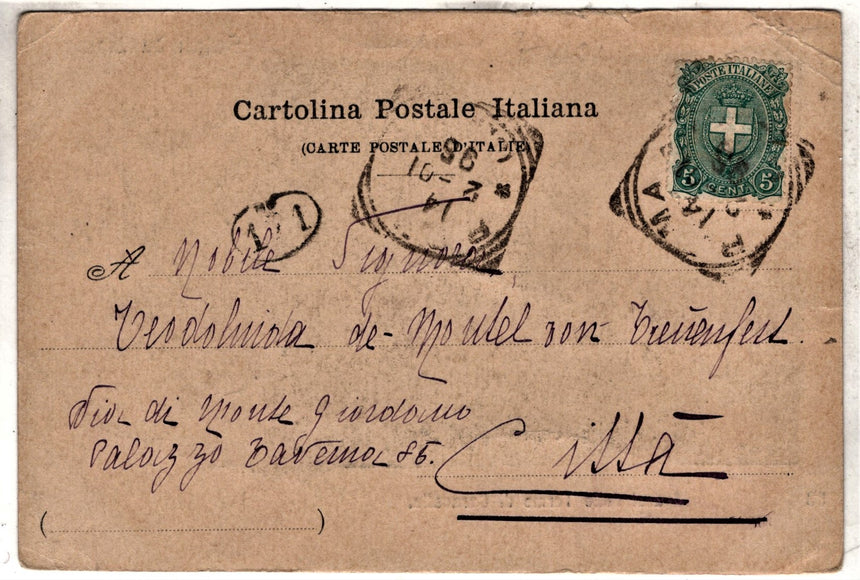 POSTE ITALIANE
5 CENT. 5
Cartolina Postale Italiana
(CARTE POSTALE D'ITALIE)
ROMA
14
2-10
95
1
A Nobile Signora
Teodolinda de Montel von Treuenfest.
Via di Monte Giordano
Palazzo Taverna 86.
Città
( )